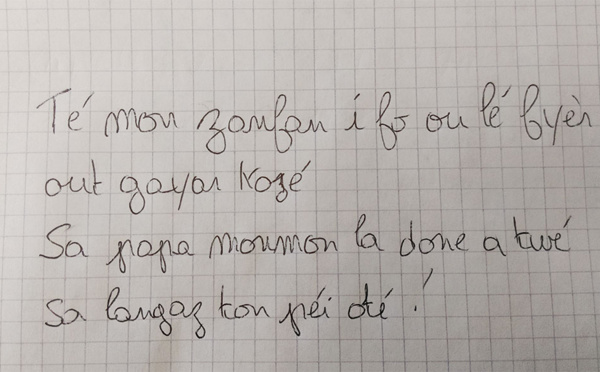 Té mon zanfan i fo ou lé byèn
out gayar kozé
Sa papa mounmon la done a twé
Sa langaz ton péi oté !